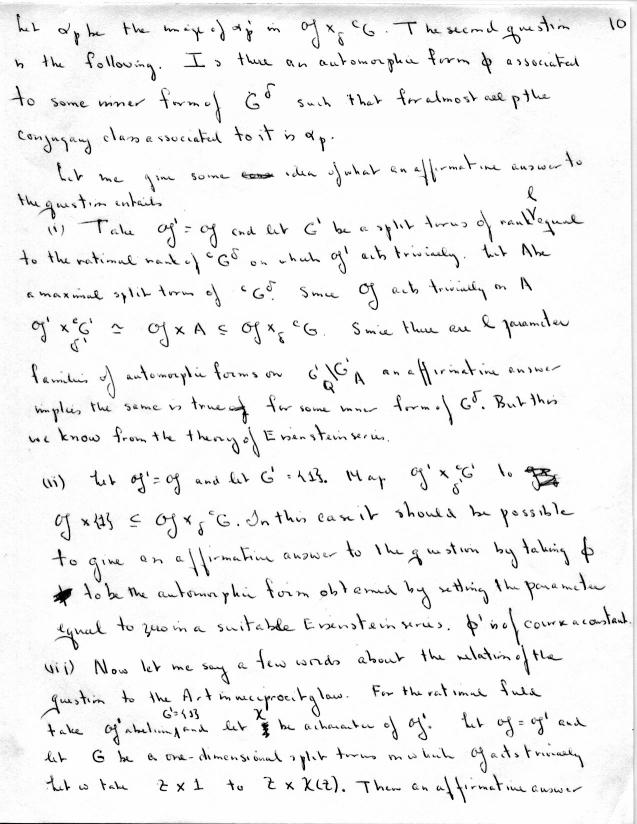 Let αp be the image of αp' in 𝔤 ×_δ ᶜG. The second question 10
is the following. Is there an automorphic form φ associated
to some inner form of G^δ such that for almost all p the
conjugacy class associated to it is αp.
Let me give some idea of what an affirmative answer to
the question entails
(i) Take 𝔤' = 𝔤 and let G' be a split torus of rank l equal
to the rational rank of ᶜG^δ on which 𝔤' acts trivially. Let A be
a maximal split torus of ᶜG^δ. Since 𝔤 acts trivially on A
𝔤' ×_δ' ᶜG' ≃ 𝔤 × A ⊆ 𝔤 ×_δ ᶜG. Since there are l parameter
families of automorphic forms on G'_Q\G'_A an affirmative answer
implies the same is true for some inner form of G^δ. But this
we know from the theory of Eisenstein series.
(ii) Let 𝔤' = 𝔤 and let G' = {1}. Map 𝔤' ×_δ' ᶜG' to
𝔤 × {1} ⊆ 𝔤 ×_δ ᶜG. In this case it should be possible
to give an affirmative answer to the question by taking φ
to be the automorphic form obtained by setting the parameter
equal to zero in a suitable Eisenstein series. φ' is of course a constant.
(iii) Now let me say a few words about the relation of the
question to the Artin reciprocity law. For the rational field
take 𝔤' abelian, G' = {1} and let χ be a character of 𝔤'. Let 𝔤 = 𝔤' and
let G be a one-dimensional split torus on which 𝔤 acts trivially
Let ω take z × 1 to z × χ(z). Then an affirmative answer